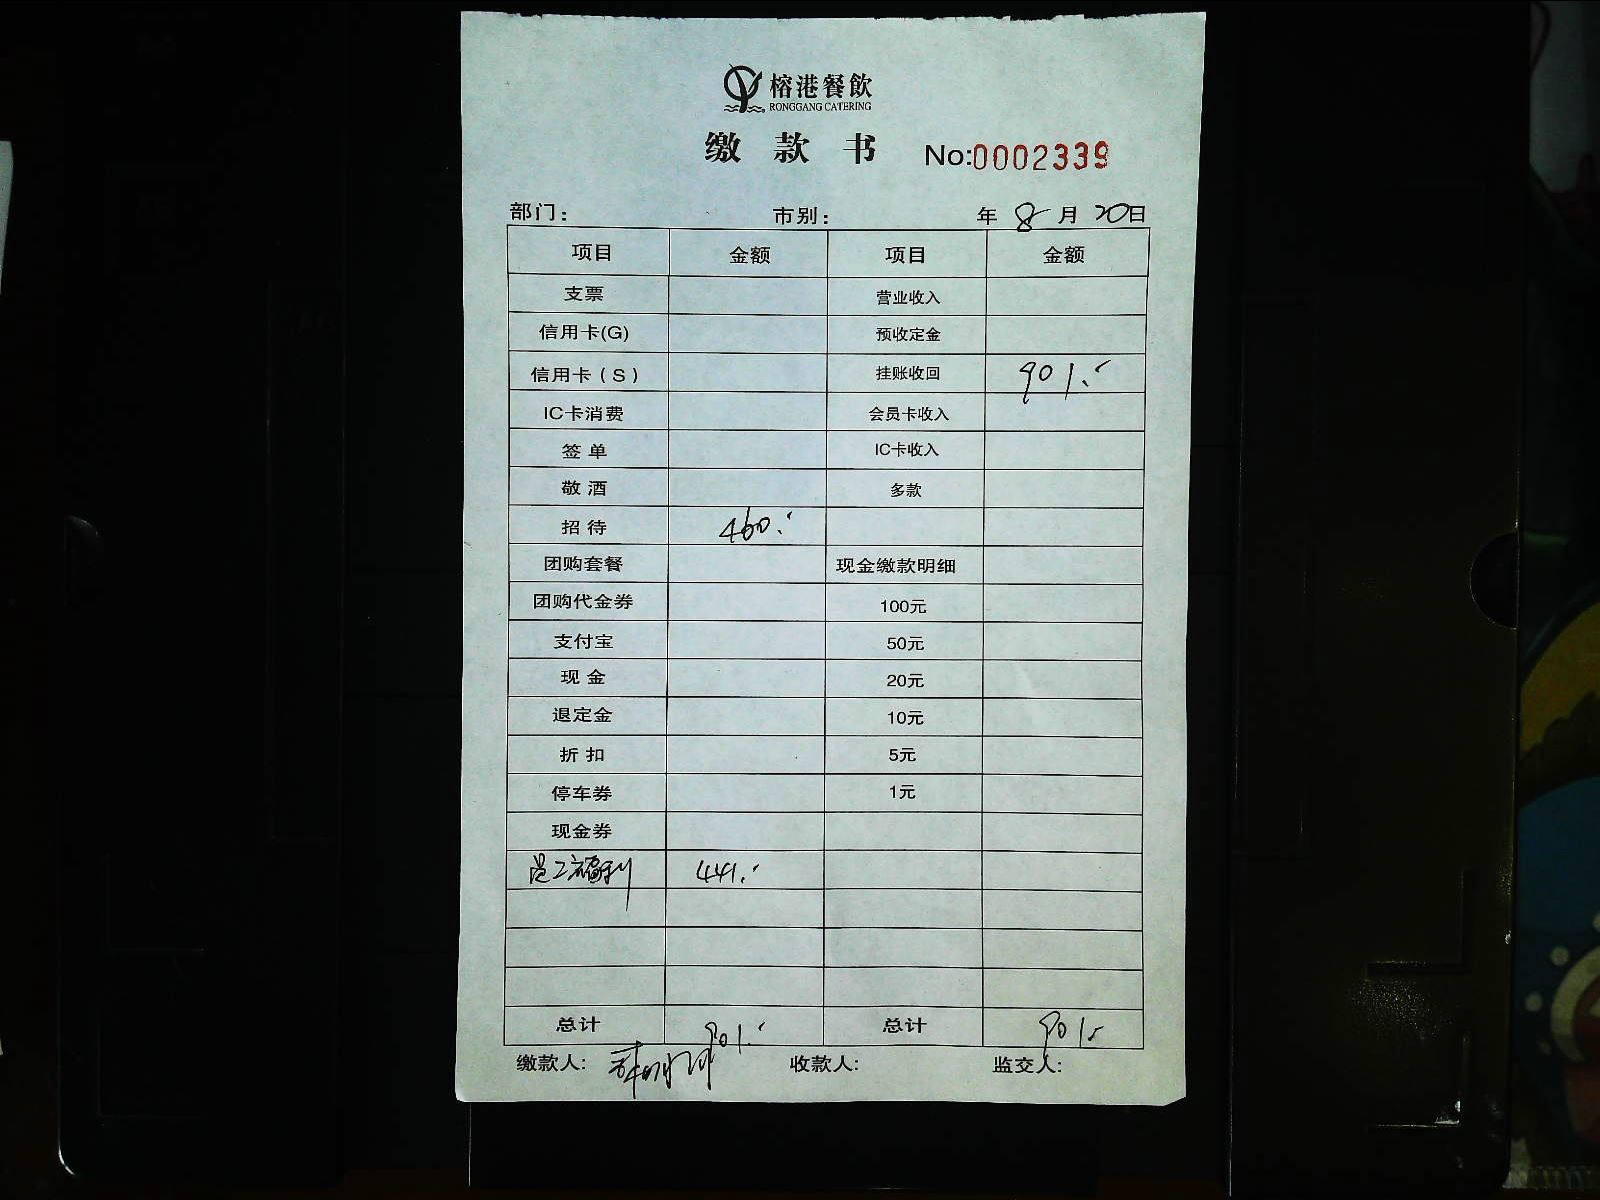 榕港餐飲
RONGGANG CATERING
缴 款 书 No:0002339
部门： 市别： 年 8 月 20日
项目 金额 项目 金额
支票 营业收入
信用卡(G) 预收定金
信用卡（S） 挂账收回 901.-
IC卡消费 会员卡收入
签 单 IC卡收入
敬 酒 多款
招 待 460.-
团购套餐 现金缴款明细
团购代金券 100元
支付宝 50元
现 金 20元
退定金 10元
折 扣 5元
停车券 1元
现金券
员工福利 441.-
总计 901.- 总计 901.-
缴款人: 收款人: 监交人: